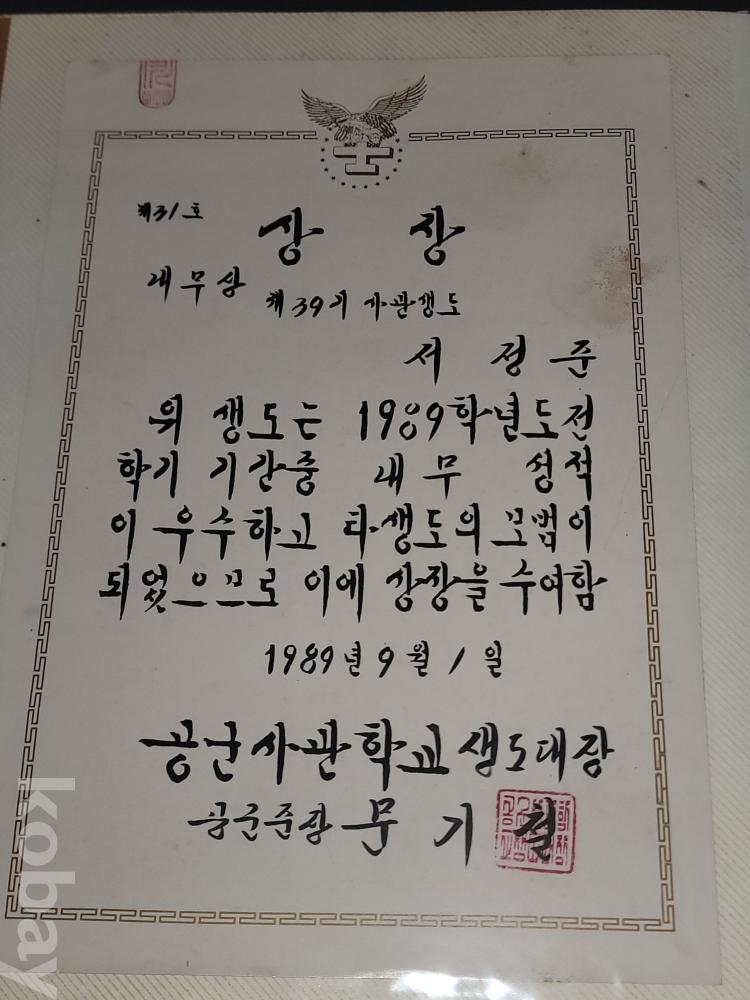 제31호
상 장
내무상
제39기 사관생도
서 정 준
위 생도는 1989학년도전
학기 기간중 내무 성적
이 우수하고 타생도의 모범이
되었으므로 이에 상장을 수여함
1989년 9월 1일
공군사관학교생도대장
공군준장 문 기 철
kobay